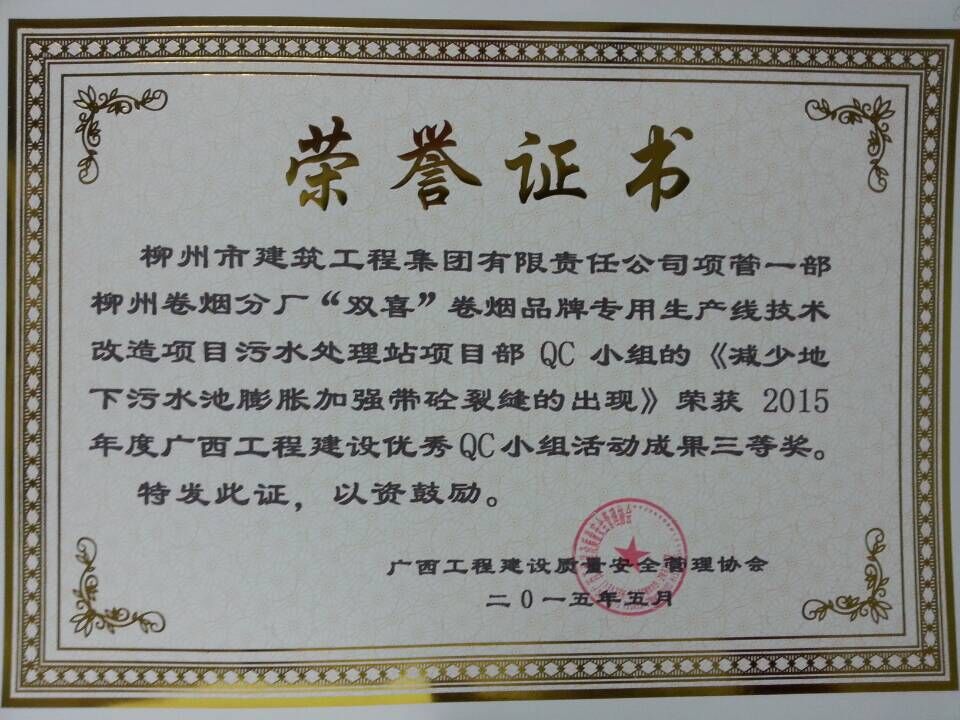 荣誉证书
柳州市建筑工程集团有限责任公司项营一部
柳州卷烟分厂“双喜”卷烟品牌专用生产线技术
改造项目污水处理站项目部 QC 小组的《减少地
下污水池膨胀加强带砼裂缝的出现》荣获 2015
年度广西工程建设优秀QC小组活动成果三等奖。
特发此证，以资鼓励。
广西工程建设质量安全管理协会
二0一五年五月